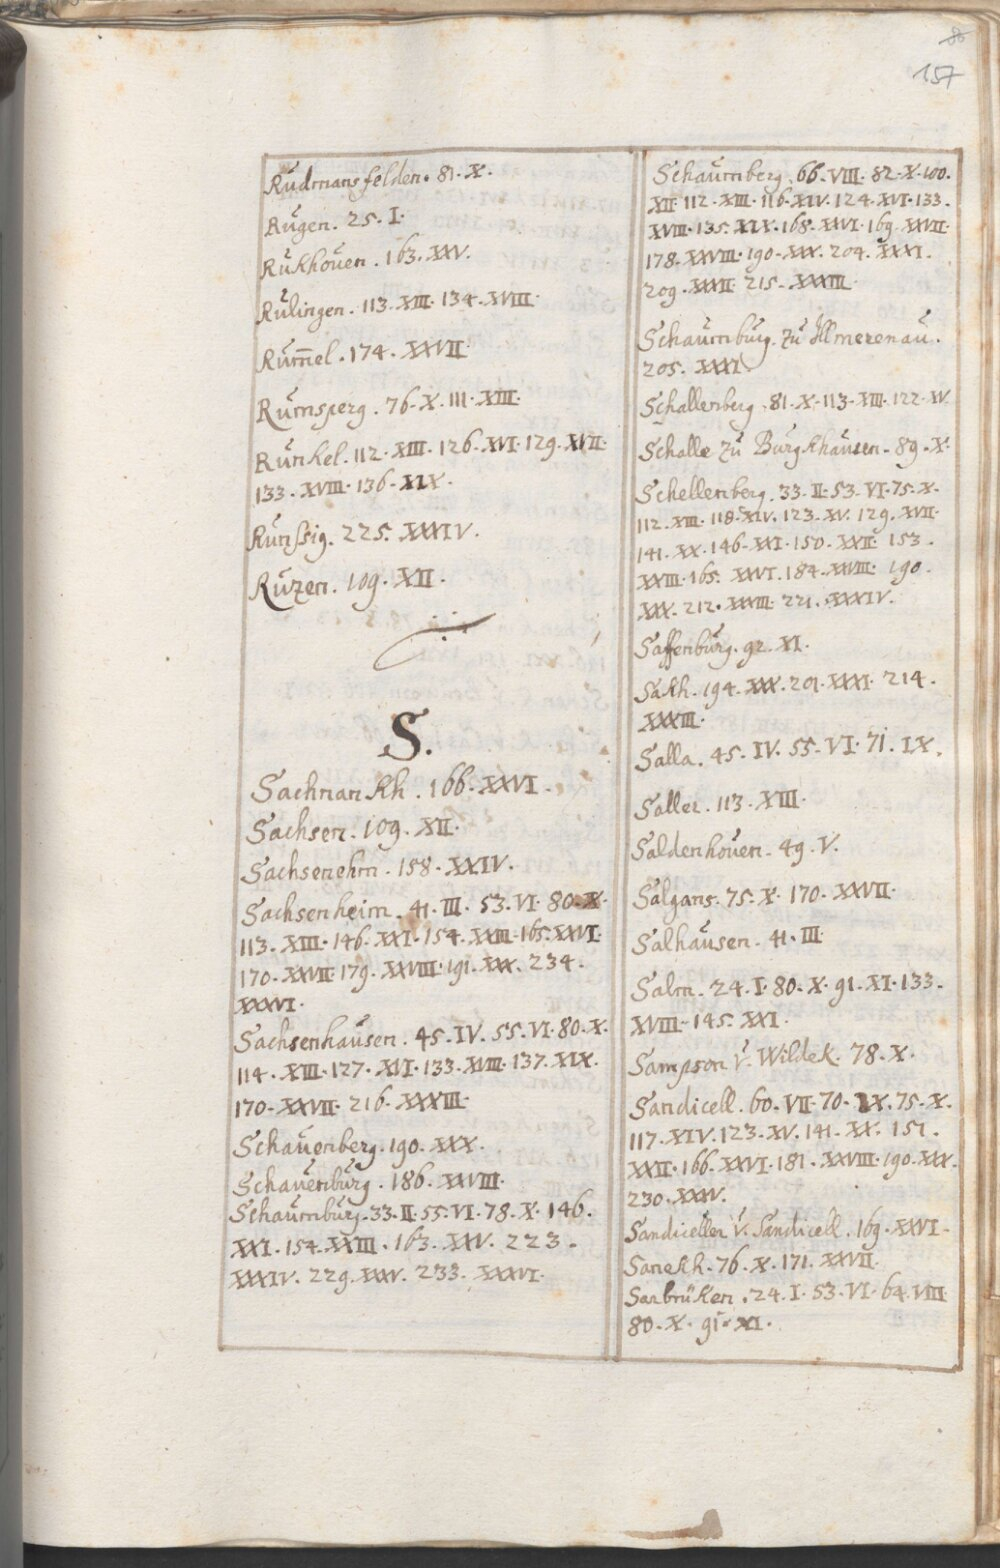 157
Rudmansfelden. 81. X.
Rugen. 25. I.
Rukhouen. 163. XXV.
Rulingen. 113. XIII. 134. XVIII.
Rum̄el. 174. XXVII
Rumsperg. 76. X. 111. XIII.
Runkel. 112. XIII. 126. XVI. 129. XVII.
133. XVIII. 136. XIX.
Runssig. 225. XXXIV.
Ruzen. 109. XII.
S.
Sachnankh. 166. XXVI.
Sachsen. 109. XII.
Sachsenehm. 158. XXIV.
Sachsenheim. 41. III. 53. VI. 80. X.
113. XIII. 146. XXI. 154. XXIII. 165. XXVI.
170. XXVII. 179. XXVIII. 191. XXX. 234.
XXXVI.
Sachsenhausen. 45. IV. 55. VI. 80. X.
114. XIII. 127. XVI. 133. XVIII. 137. XIX.
170. XXVII. 216. XXXIII.
Schauenberg. 190. XXX.
Schauenburg. 186. XXVIII.
Schaumburg. 33. II. 55. VI. 78. X. 146.
XXI. 154. XXIII. 163. XXV. 223.
XXXIV. 229. XXXV. 233. XXXVI.
Schaumberg. 66. VIII. 82. X. 100.
XII. 112. XIII. 116. XIV. 124. XVI. 133.
XVIII. 135. XIX. 168. XXVI. 169. XXVII.
178. XXVIII. 190. XXX. 204. XXXI.
209. XXXII. 215. XXXIII.
Schaumburg. zu
205. XXXI
Schallenberg. 81. X. 113. XIII. 122. XV.
Schalle zu Burgkhausen. 89. X.
Schellenberg. 33. II. 53. VI. 75. X.
112. XIII. 118. XIV. 123. XV. 129. XVII.
141. XX. 146. XXI. 150. XXII. 153.
XXIII. 165. XXVI. 184. XXVIII. 190.
XXX. 212. XXXIII. 221. XXXIV.
Saffenburg. 92. XI.
Sakh. 194. XXX. 201. XXXI. 214.
XXXIII.
Salla. 45. IV. 55. VI. 71. IX.
Saller. 113. XIII.
Saldenhouen. 49. V.
Salgans. 75. X. 170. XXVII.
Salhausen. 41. III
Salm. 24. I. 80. X. 91. XI. 133.
XVIII. 145. XXI.
Sampson v. Wildek. 78. X.
Sandicell. 60. VII. 70. IX. 75. X.
117. XIV. 123. XV. 141. XX. 151.
XXII. 166. XXVI. 181. XXVIII. 190. XXX.
230. XXXV.
Sandiceller v. Sandicell. 169. XXVI.
Sanekh. 76. X. 171. XXVII.
Sarbruken. 24. I. 53. VI. 64. VIII
80. X. 91. XI.